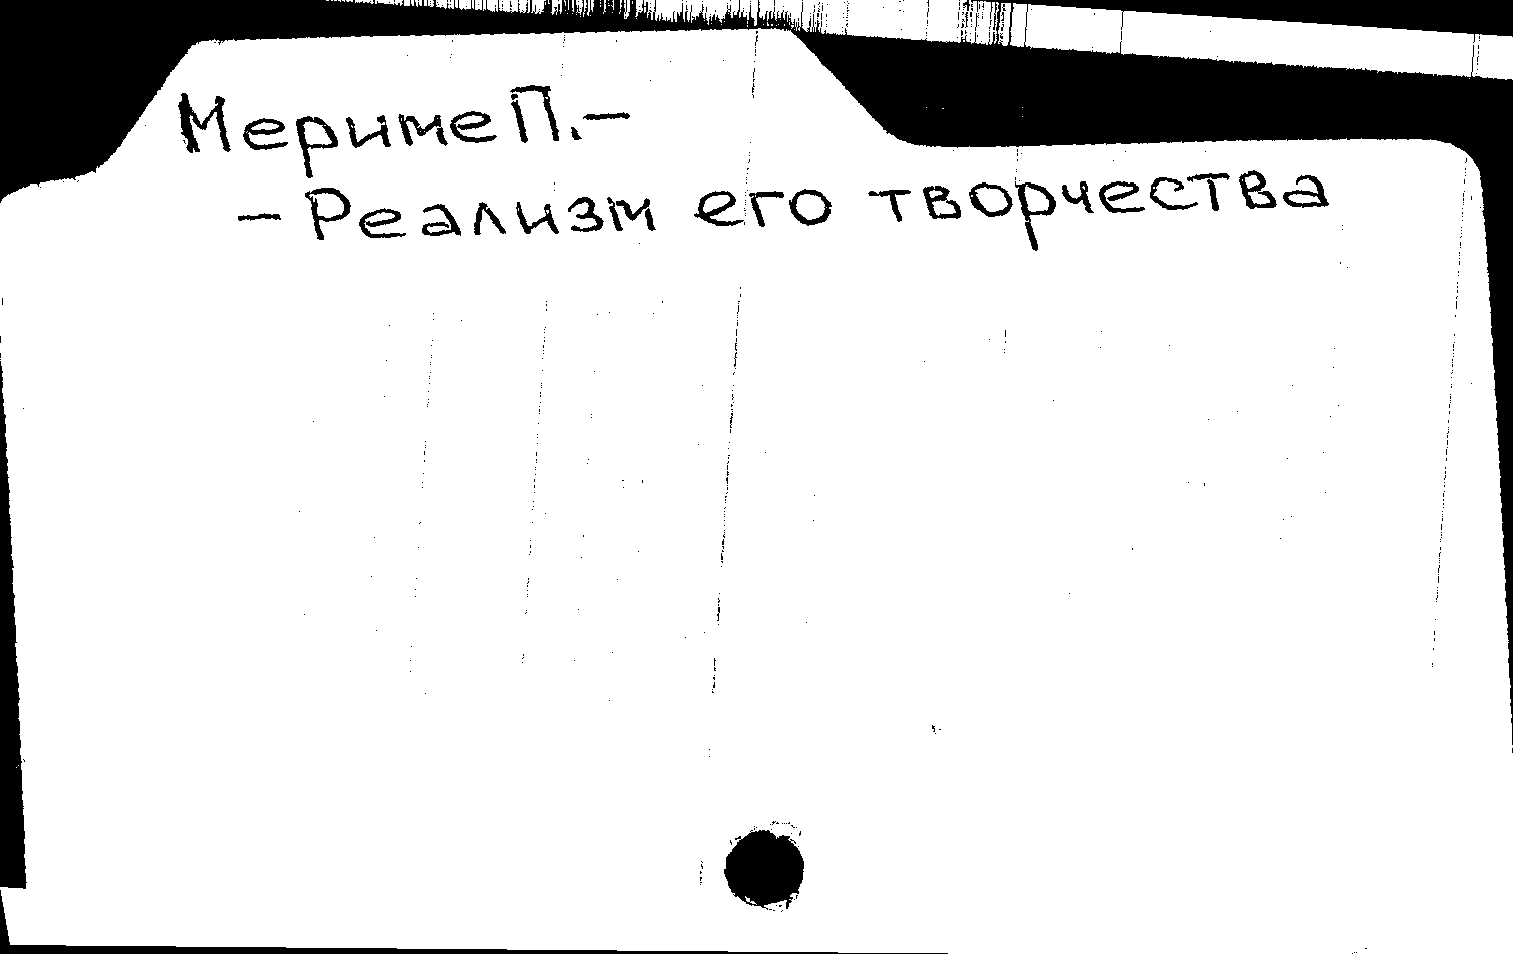 Мериме П.–
– Реализм его творчества